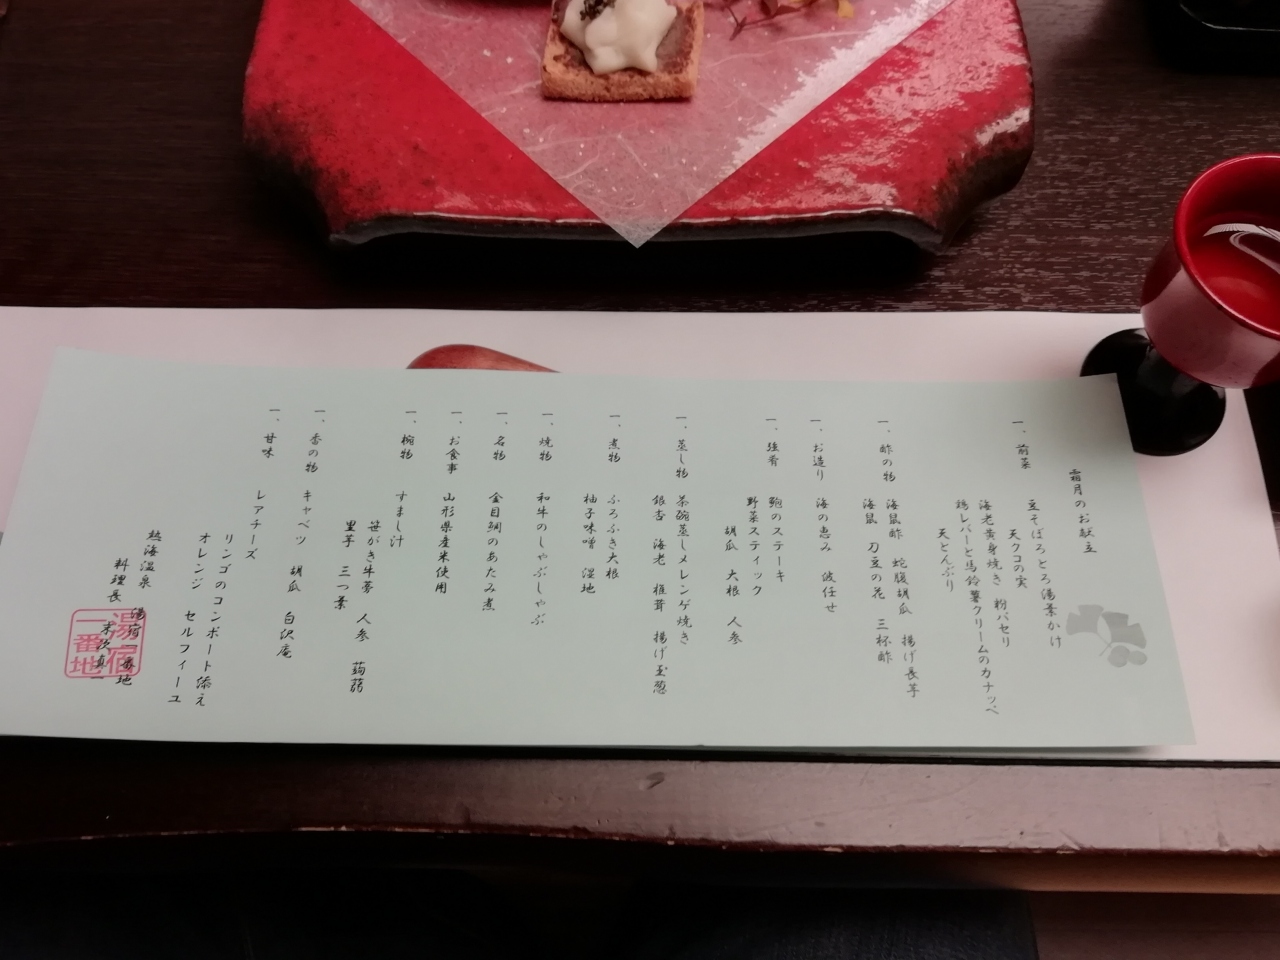 霜月のお献立
一、前菜 豆そぼろとろ湯葉かけ
天クコの実
海老黄身焼き 粉パセリ
鶏レバーと馬鈴薯クリームのカナッペ
天とんぶり
一、酢の物 海鼠酢 蛇腹胡瓜 揚げ長芋
海鼠 刀豆の花 三杯酢
一、お造り 海の恵み 波任せ
一、強肴 鮑のステーキ
野菜スティック
胡瓜 大根 人参
一、蒸し物 茶碗蒸しメレンゲ焼き
銀杏 海老 椎茸 揚げ玉葱
一、煮物 ふろふき大根
柚子味噌 湿地
一、焼物 和牛のしゃぶしゃぶ
一、名物 金目鯛のあたみ煮
一、お食事 山形県産米使用
一、椀物 すまし汁
笹がき牛蒡 人参 蒟蒻
里芋 三つ葉
一、香の物 キャベツ 胡瓜 白沢庵
一、甘味 レアチーズ
リンゴのコンポート添え
オレンジ セルフィーユ
熱海温泉 湯宿一番地
料理長 末次真一
湯宿
一番地